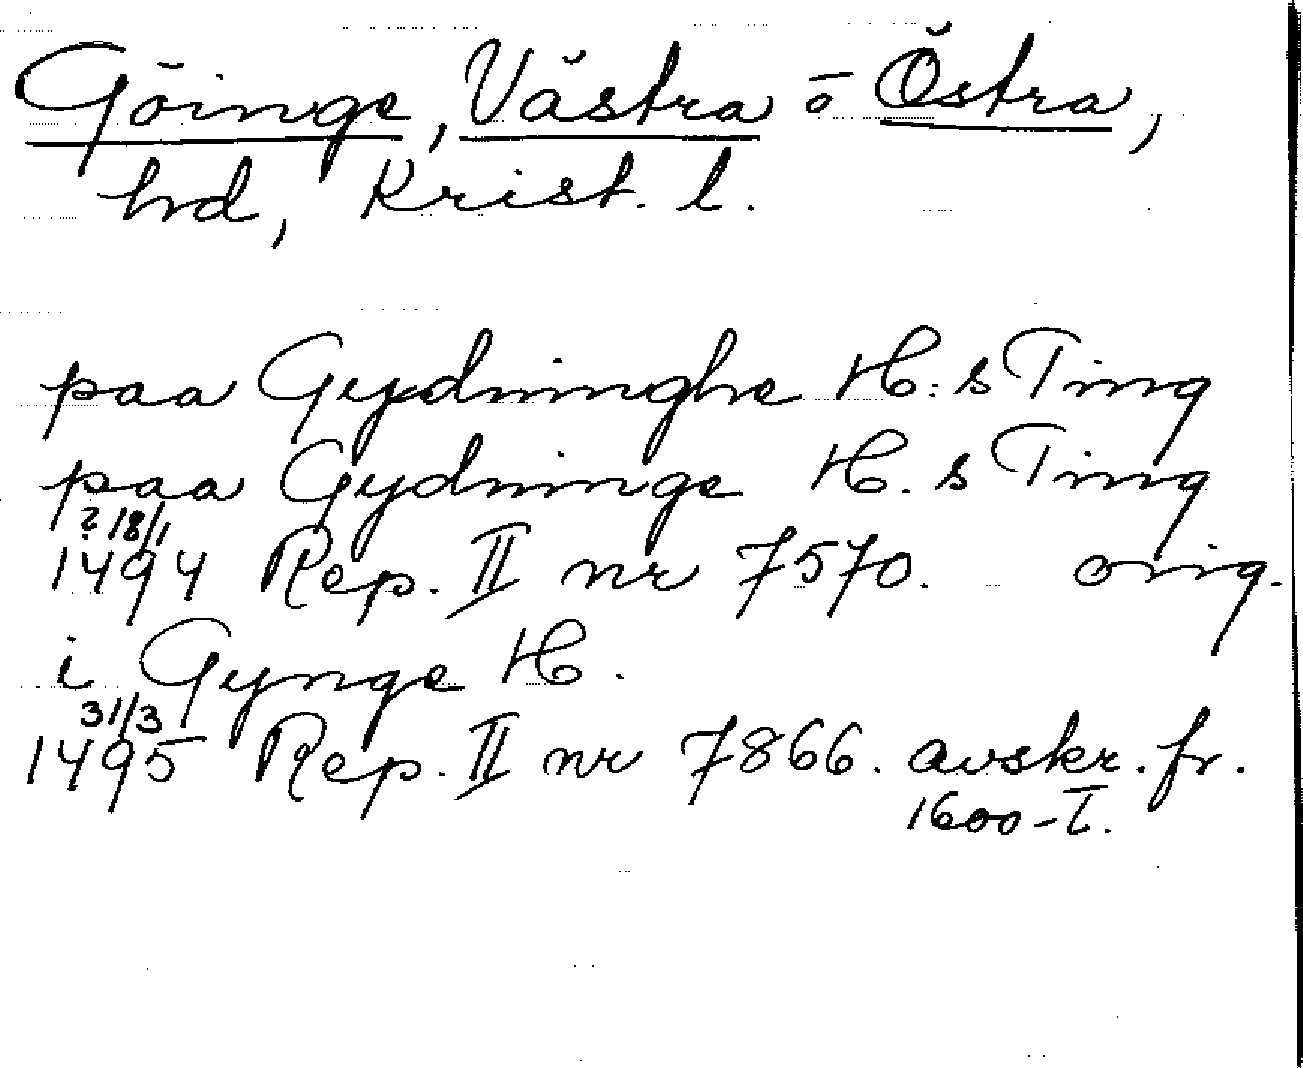 Göinge, Västra o Östra,
hd, Krist. l.
paa Gydninghe H:s Ting
paa Gydninge H.s Ting
? 18/1
1494 Rep. II nr 7570. orig.
i Gynge H.
31/3
1495 Rep. II nr 7866. avskr. fr.
1600-t.